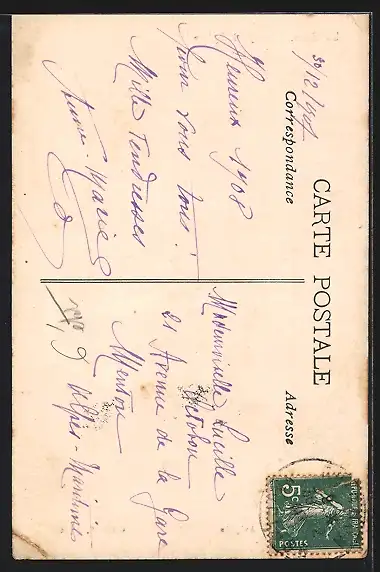 CARTE POSTALE
Correspondance
Adresse
30/12/
Heureux 1908
pour vous tous!
Mille Tendresses
Anne-Marie
Mademoiselle Lucille
21 Avenue de la Gare
Menton
Alpes-Maritimes
5c
POSTES